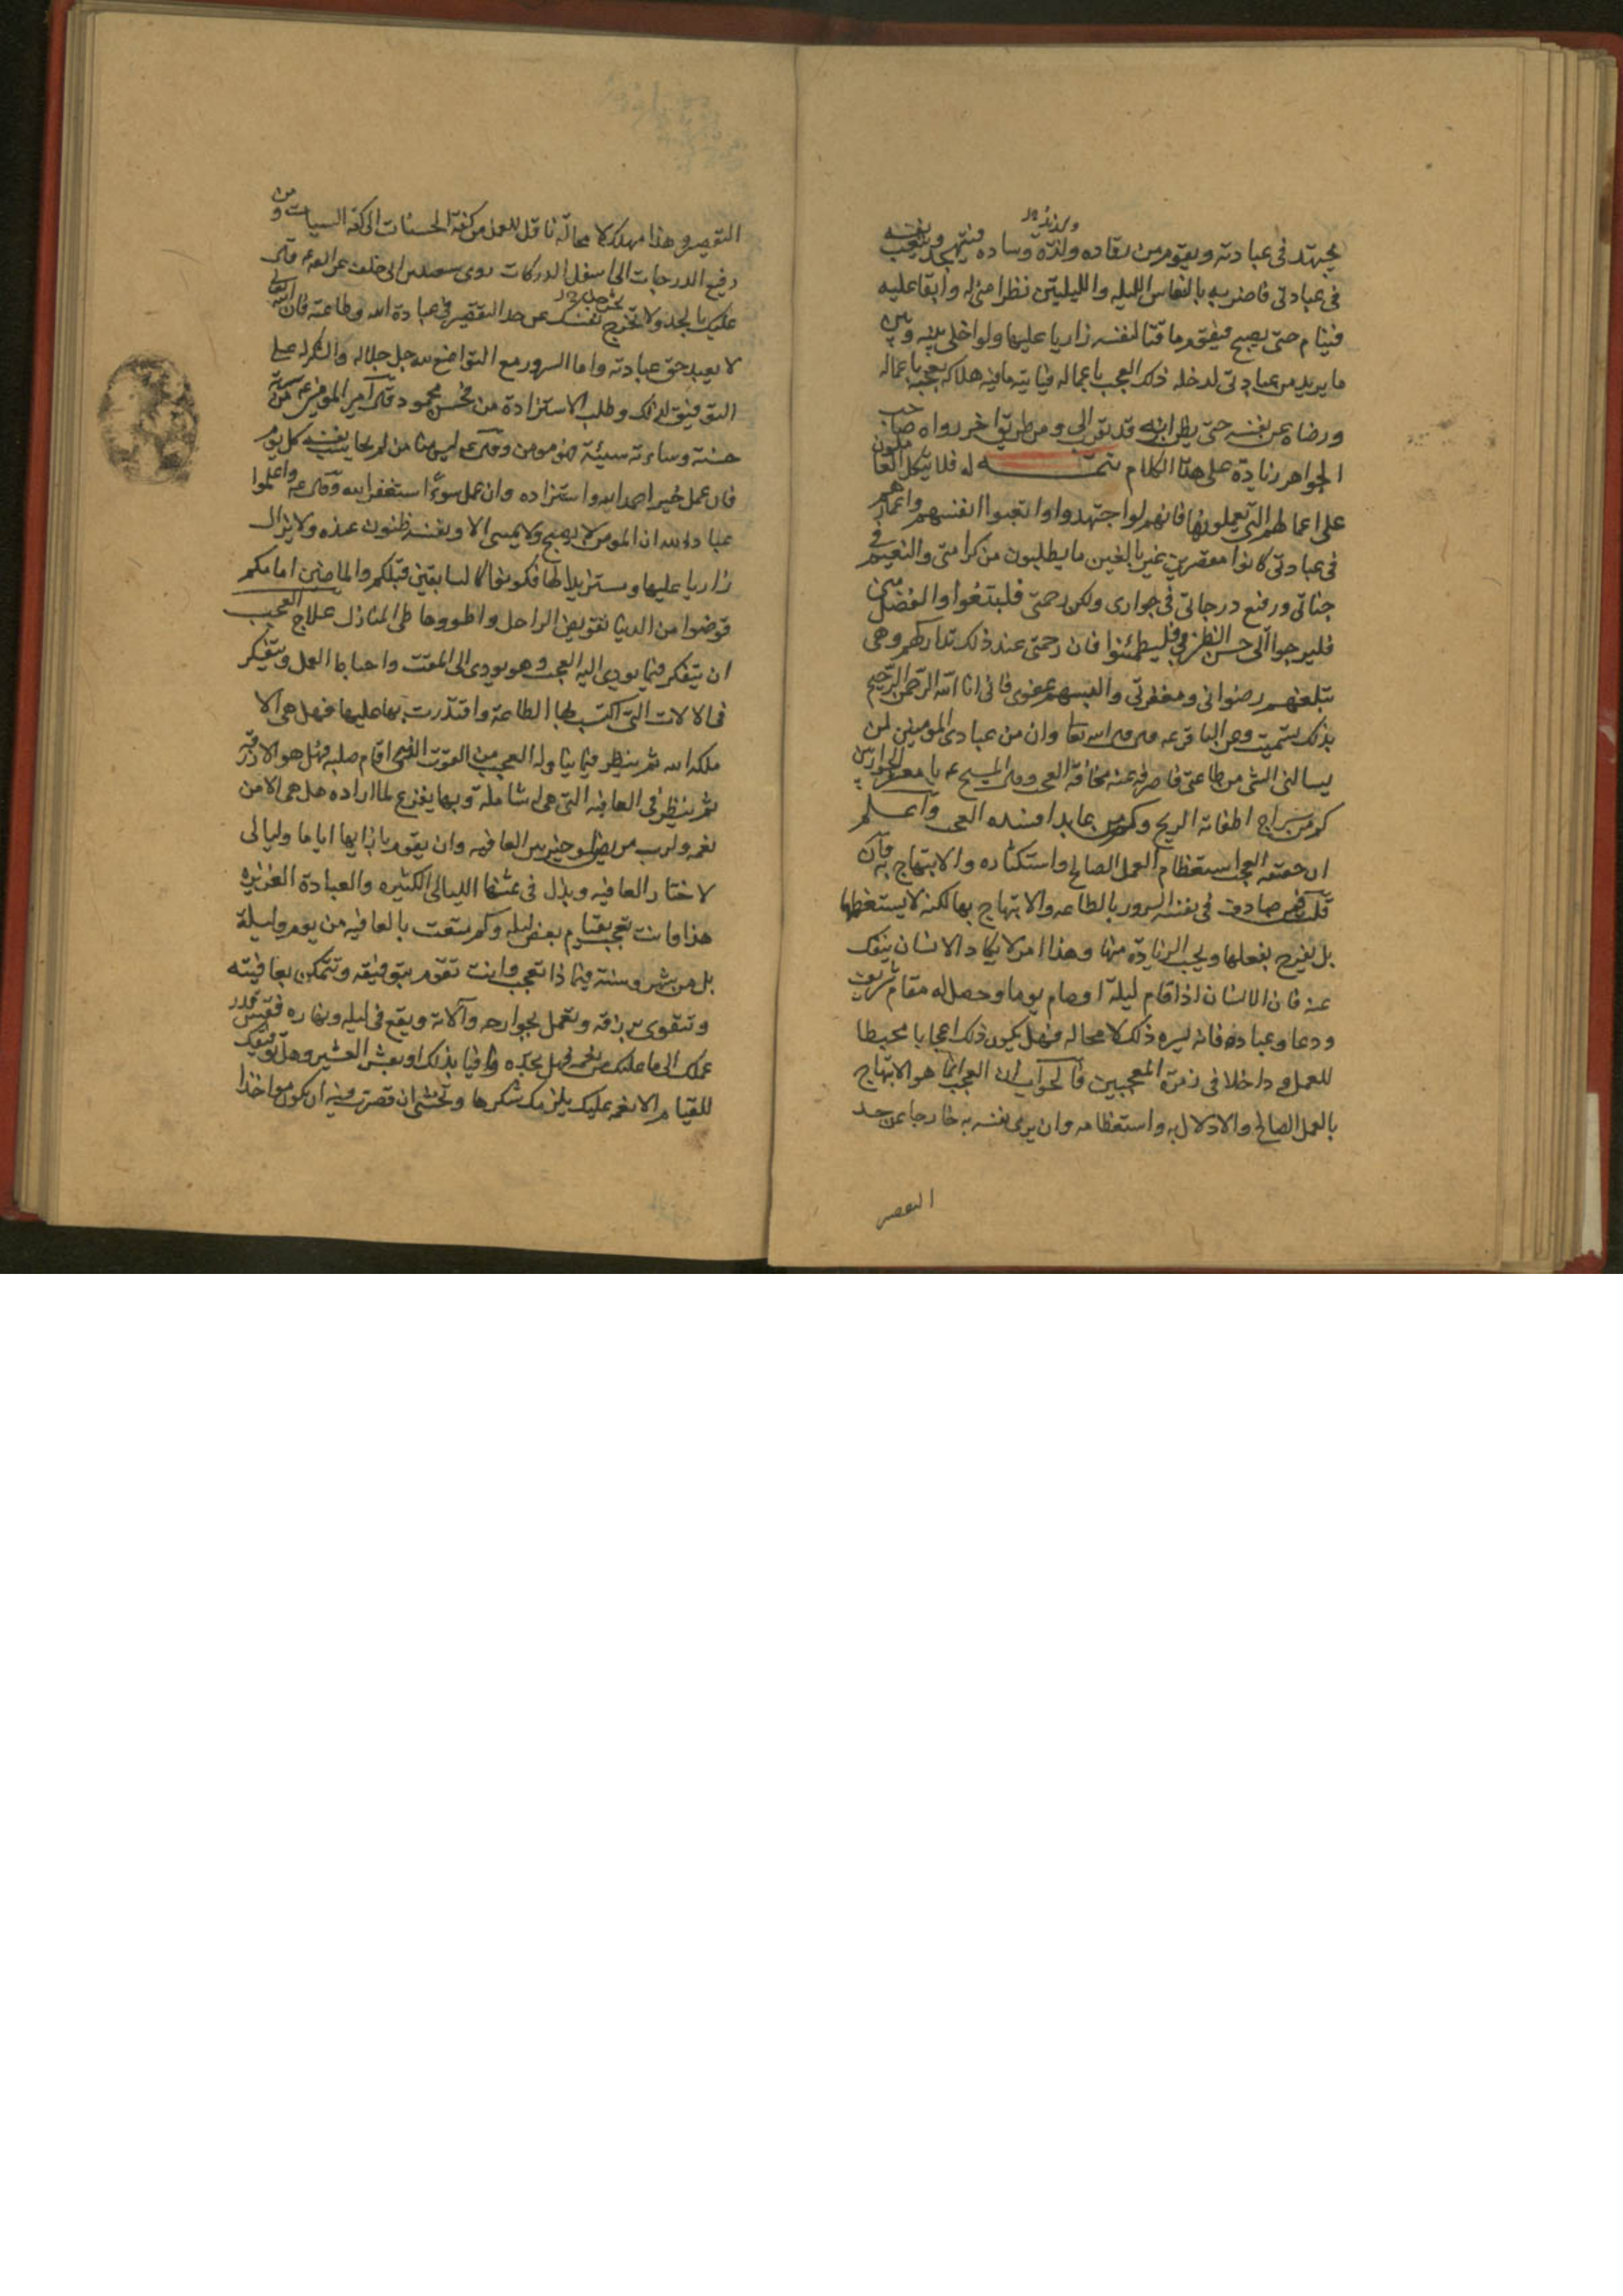 يجتهد في عبادته ويقوم من رقاده ولذة وساده فيتهجد ويتعب نفسه
في عبادتي فاضربه بالنعاس الليله والليلتين نظرا مني له وابقا عليه
فينام حتى يصبح فيقوم ماقتا لنفسه زاريا عليها ولو اخلي بينه وبين
ما يريد من عبادتي لدخله ذلك العجب باعماله فياتيه ما فيه هلاكه بعجبه باعماله
ورضاه عن نفسه حتى يظن انه قد تقرب الي ومن طريق اخر رواه صاحب
الجواهر زيادة على هذا الكلام تتمة له فلا يتكل العاملون
على اعمالهم التي يعملونها فانهم لو اجتهدوا واتعبوا انفسهم واعمارهم
في عبادتي كانوا مقصرين غير بالغين ما يطلبون من كرامتي والنعيم في
جناتي ورفيع درجاتي في جواري ولكن رحمتي فليبتغوا والفضل مني
فليرجوا والى حسن الظن بي فليطمئنوا فان رحمتي عند ذلك تداركهم وهي
تبلغهم رضواني ومغفرتي والبسهم عفوي فاني انا الله الرحمن الرحيم
بذلك تسميت وعن الباقر ع قال قال الله تعا وان من عبادي المومنين لمن
يسالني الشي من طاعتي فاصرفه عنه مخافة العجب وقال المسيح ع يا معشر الحواريين
كم من سراج اطفاته الريح وكم من عابد افسده العجب واعلم
ان حقيقة العجب استعظام العمل الصالح واستكثاره والابتهاج به فان
قلت فمن صادف في نفسه السرور بالطاعه والابتهاج بها لكنه لا يستعظمها
بل يفرح بفعلها ويحب الزيادة منها وهذا امر لا يكاد الانسان ينفك
عنه فان الانسان اذا قام ليلة او صام يوما وحصل له مقام شريف
ودعا وعبادة فانه ليسره ذلك لا محاله فهل يكون ذلك اعجابا محبطا
للعمل و داخلا في زمرة المعجبين فالجواب ان العجب انما هو الابتهاج
بالعمل الصالح والادلال به واستعظامه وان يرى نفسه به خارجا عن حد
التقصير
التقصير وهذا مهلك لا محالة ناقل للعمل من كفة الحسنات الى كفة السيات ومن
رفيع الدرجات الى اسفل الدركات روى سعد بن ابي خلف عن الصادق ع قال
عليك بالجد ولا تخرجن نفسك عن حد التقصير في عبادة الله وطاعته فان الله تعالى
لا يعبد حق عبادته واما السرور مع التواضع لله جل جلاله والشكر له على
التوفيق لذلك وطلب الاستزادة منه فحسن محمود قال امير المومنين ع من سرته
حسنته وساءته سيئته فهو مومن وقال ع ليس منا من لم يحاسب نفسه كل يوم
فان عمل خيرا حمد الله واستزاده وان عمل سوءا استغفر الله وقال ع واعلموا
عباد الله ان المومن لا يصبح ولا يمسي الا ونفسه ظنون عنده ولا يزال
زاريا عليها ومستزيدا لها فكونوا كالسابقين قبلكم والماضين امامكم
قوضوا من الدنيا تقويض الراحل واطووها طي المنازل علاج العجب
ان يتفكر فيما يودي اليه العجب وهو يودي الى المقت واحباط العمل ويتفكر
في الالات التي اكتسب بها الطاعة واقتدرت بها عليها فهل هي الا
ملكه الله ثم ينظر فيما يتناوله العجب من القوت الذي اقام صلبه فهل هو الا رزقه
ثم ينظر في العافيه التي هي له شاملة وبها يفزع لما اراده هل هي الا من
نعمه ولرب مريض لو خير بين العافيه وان يقوم بازايها اياما وليالي
لاختار العافيه وبذل في عشقها الليالي الكثيره والعبادة الغزيرة
هذا وانت تعجب بقيام بعض ليله وكم تمتعت بالعافيه من يوم وليلة
بل من شهر وسنة فبماذا تعجب وانت تقوم بتوفيقه وتتمكن بعافيته
وتتقوى برزقه وتعمل بجوارحه وآلاته ويقع في ليله ونهاره فقس قدر
عملك الى ما عليك من نعمه فهل تجده وافيا بذلك او بعشر العشير وهل توفيقك
للقيام الا نعمه عليك يلزمك شكرها وتخشى ان قصرت فيه ان يكون مواخذا